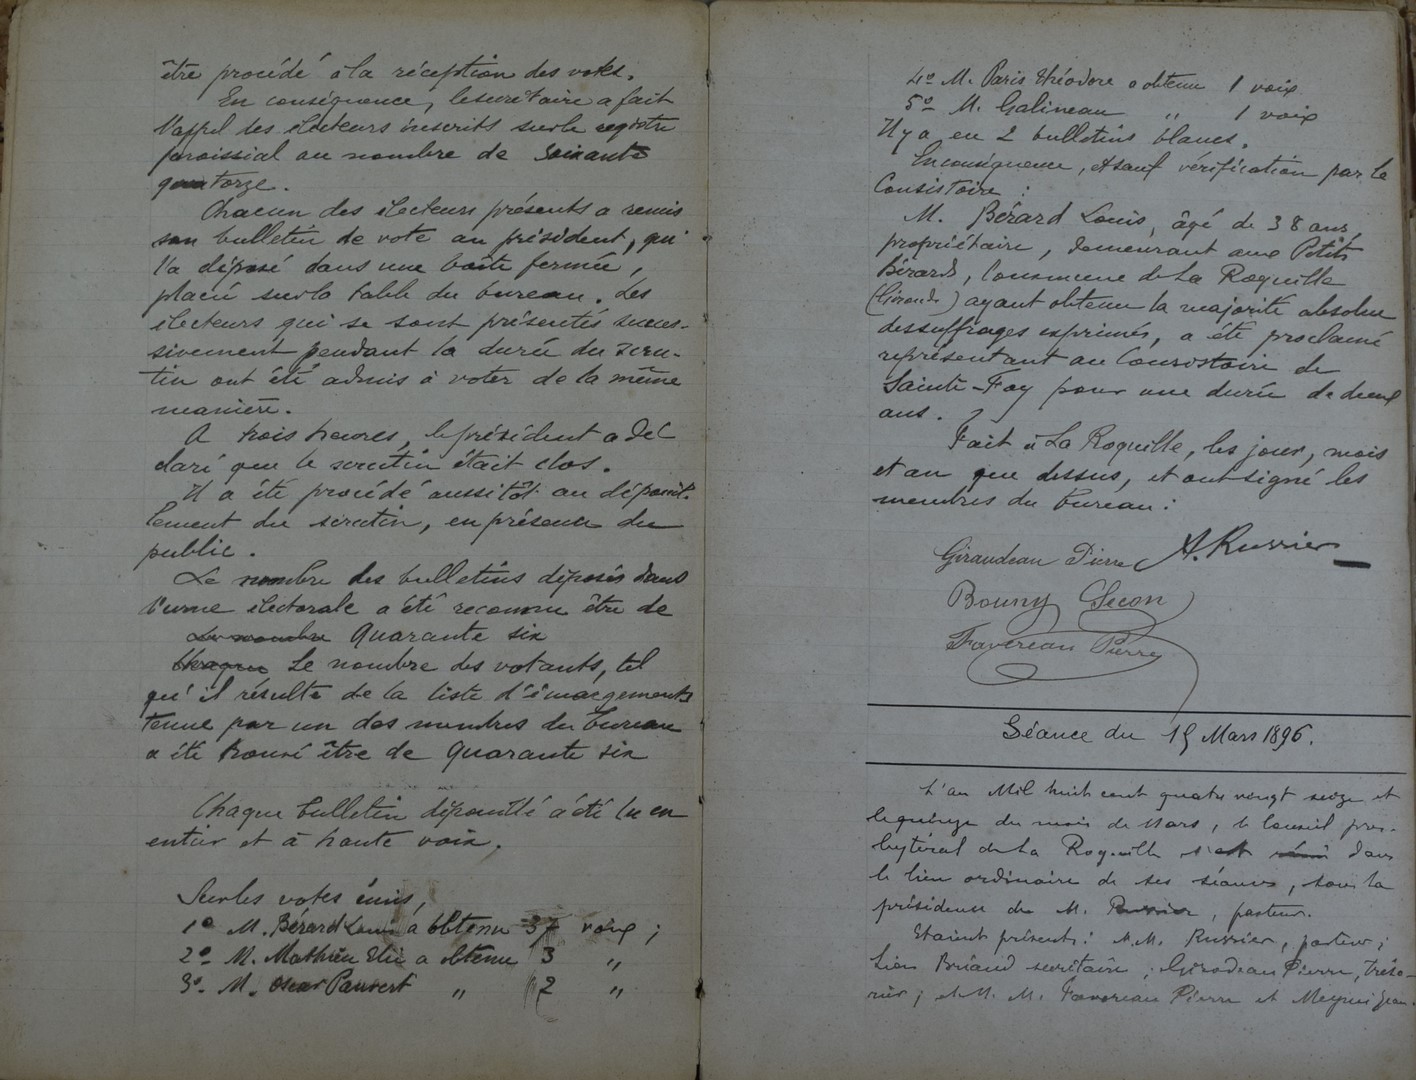 être procédé à la réception des votes.
En conséquence, le secrétaire a fait
l'appel des électeurs inscrits sur le registre
paroissial au nombre de soixante
quatorze.
Chacun des électeurs présents a remis
son bulletin de vote au président, qui
l'a déposé dans une boîte fermée,
placée sur la table du bureau. Les
électeurs qui se sont présentés succes-
sivement pendant la durée du scru-
tin ont été admis à voter de la même
manière.
A trois heures, le président a dé
claré que le scrutin était clos.
Il a été procédé aussitôt au dépouil-
lement du scrutin, en présence du
public.
Le nombre des bulletins déposés dans
l'urne électorale a été reconnu être de
Le nombre Quarante six
Chaque Le nombre des votants, tel
qu'il résulte de la liste d'émargements
tenue par un des membres du bureau
a été trouvé être de Quarante six
Chaque bulletin dépouillé a été lu en
entier et à haute voix.
Sur les votes émis,
1o M. Bérard Louis a obtenu 37 voix ;
2o M. Mathieu Elie a obtenu 3 "
3o M. Oscar Pauvert " 2 "
4o M. Paris Théodore a obtenu 1 voix
5o M. Galineau " 1 voix
Il y a eu 2 bulletins blancs.
En conséquence, et sauf vérification par le
Consistoire :
M. Bérard Louis, âgé de 38 ans,
propriétaire, demeurant aux Petits
Bérards, Commune de La Roquille
(Gironde) ayant obtenu la majorité absolue
des suffrages exprimés, a été proclamé
représentant au Consistoire de
Sainte-Foy pour une durée de deux
ans.
Fait à La Roquille, les jour, mois
et an que dessus, et ont signé les
membres du bureau :
Giraudeau Pierre A. Russier
Bouny Gecon
Favereau Pierre
Séance du 15 Mars 1896.
L'an Mil huit cent quatre vingt seize et
le quinze du mois de Mars, le Conseil pres-
bytéral de La Roquille s'est réuni dans
le lieu ordinaire de ses séances, sous la
présidence de M. Russier, pasteur.
Etaient présents : M.M. Russier, pasteur ;
Briand secrétaire ; Girodeau Pierre, tréso-
rier ; et M. M. Favereau Pierre et Meynui Jean.